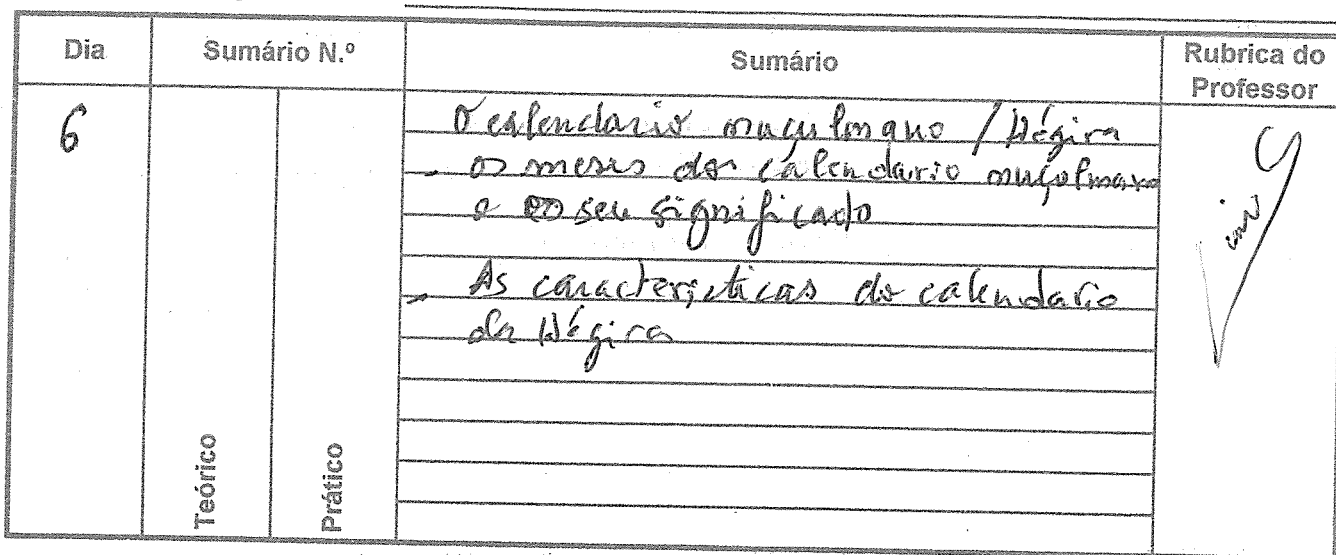 Dia
Sumário N.º
Sumário
Rubrica do
Professor
6
O calendario muçulmano / Hégira
- os meses do calendario muçulmano
e o seu significado
- As características do calendario
da Hégira
Teórico
Prático